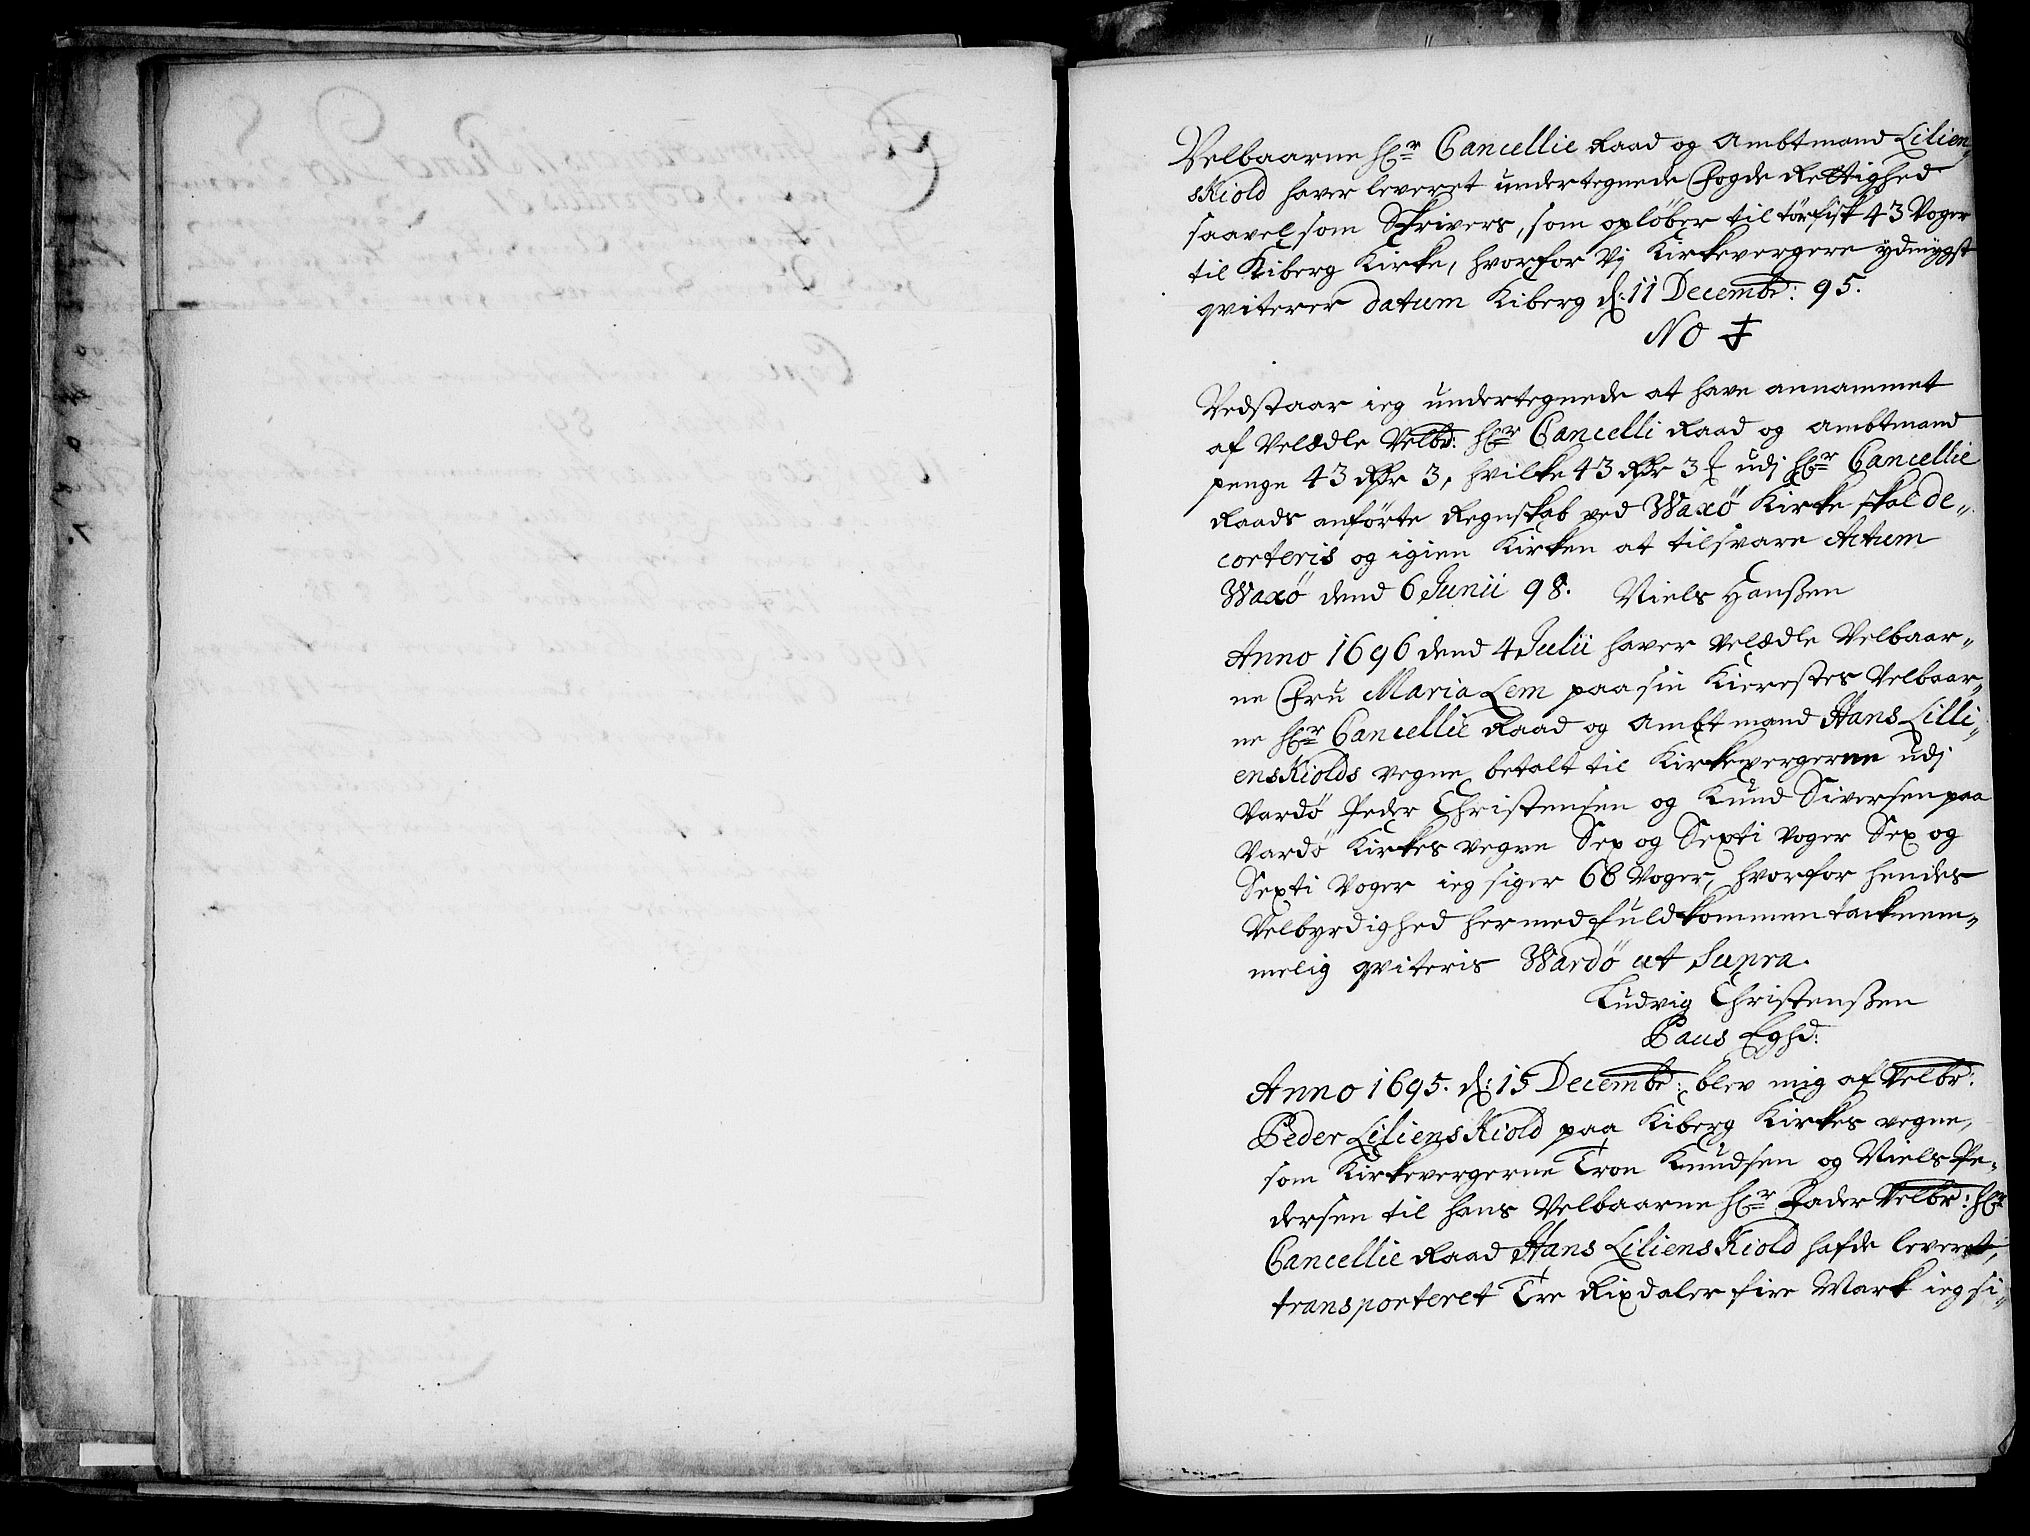 Velbaarne Hr Cancellie Raad og Ambtmand Lilien-
sKiold haver leveret undertegnede Fogde Rettighed
saavelsom Skrivers, som opløber til törfisk 43 Voger
til Kiberg Kirke, hvorfor Vj Kirkevergere ydmygst
qviterer datum Kiberg d: 11 Decembr: 95.
No
Vedstaar ieg undertegnede at have annammet
af Velædle Velbr: Hr Cancelli Raad og Ambtmand
penge 43 Rdr 3, hvilke 43 Rdr 3 udj Hr Cancellie
Raads anförte Regnskab ved Waxö Kirke skal de-
corteris og igien Kirken at tilsvare Actum
Waxö dend 6 Junii 98. Niels Hanßen
Anno 1696 dend 4 Julii haver Velædle Velbaar-
ne Fru Maria Lem paa sin Kierestes Velbaar-
ne Hr Cancellie Raad og Ambtmand Hans Lilli-
ensKiolds vegne betalt til Kirkevergerne udj
Vardö Peder Christensen og Knud Siversen paa
Vardö Kirkes vegne Sex og Sexti Voger Sex og
Sexti Voger ieg siger 66 Voger, hvorfor hendes
Velbyrdighed hermed fuldkommen tacknem-
melig qviteris Wardö ut Supra.
Ludvig Christenßen
Paus Eghd:
Anno 1695. d: 15 Decembr: blev mig af Velbr:
Peder LiliensKiold paa Kiberg Kirkes vegne,
som Kirkevergerne Tron Knudsen og Niels Pe-
dersen til hans Velbaarne Hr Fader Velbr: Hr
Cancellie Raad Hans LiliensKiold hafde leveret,
transporteret Tre Rixdaler fire Mark ieg si-